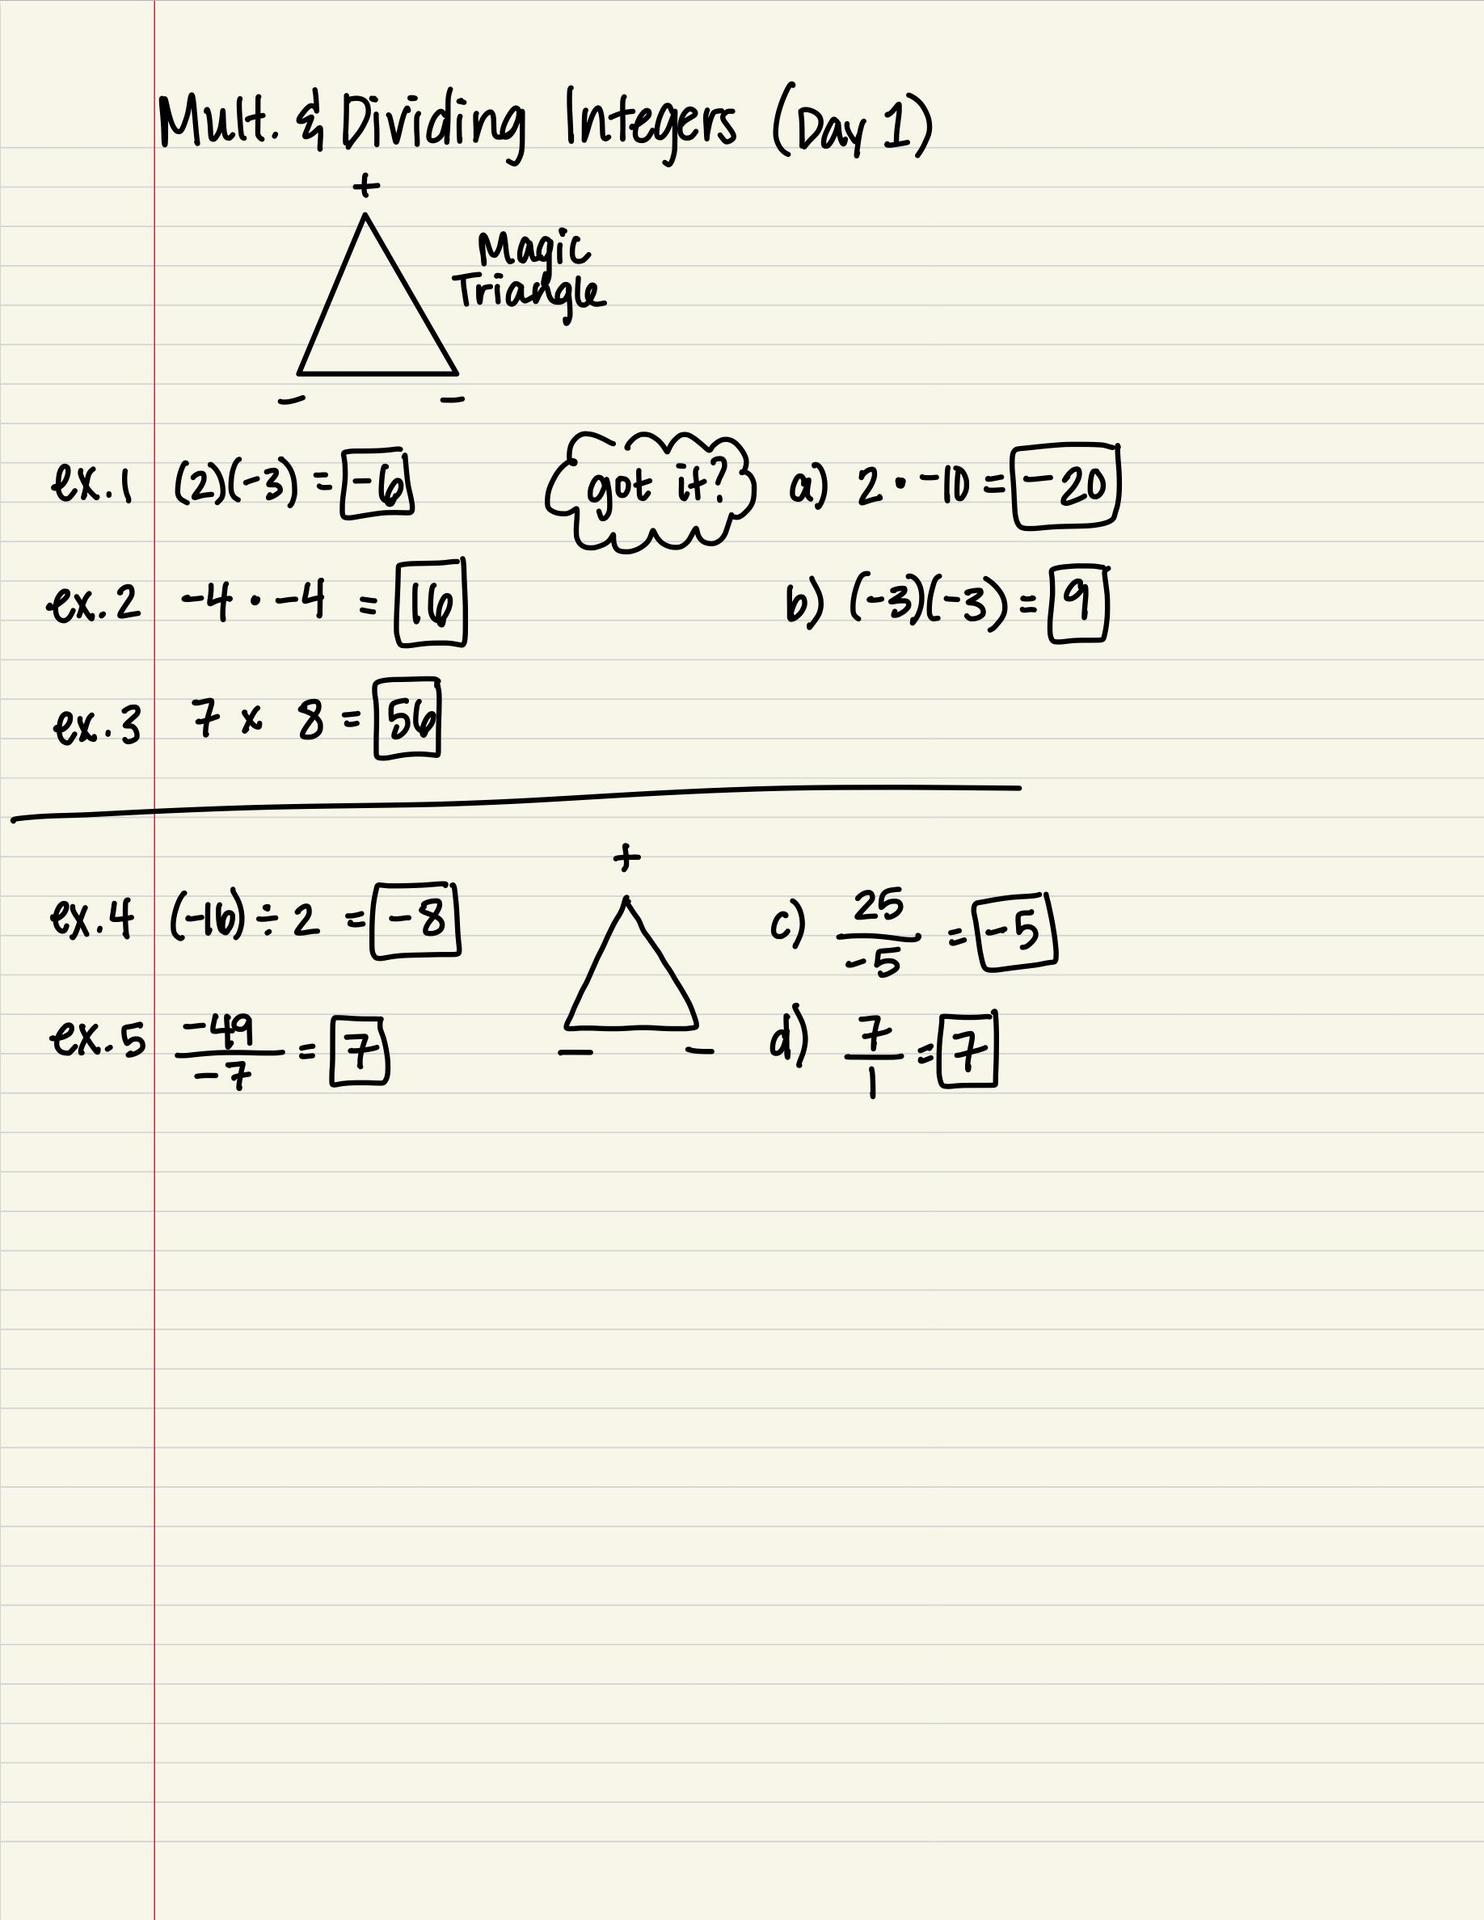 Mult. & Dividing Integers (Day 1)
+
Magic
Triangle
- -
ex.1 (2)(-3) = -6
got it? a) 2 · -10 = -20
ex.2 -4 · -4 = 16
b) (-3)(-3) = 9
ex.3 7 x 8 = 56
+
ex.4 (-16) ÷ 2 = -8
c) 25/-5 = -5
ex.5 -49/-7 = 7
- -
d) 7/1 = 7